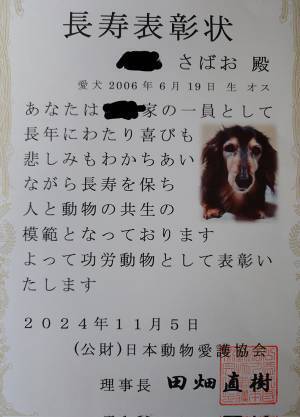 長寿表彰状
さばお 殿
愛犬 2006年6月19日 生 オス
あなたは 家の一員として
長年にわたり喜びも
悲しみもわかちあい
ながら長寿を保ち
人と動物の共生の
模範となっております
よって功労動物として表彰い
たします
2024年11月5日
(公財)日本動物愛護協会
理事長 田畑直樹